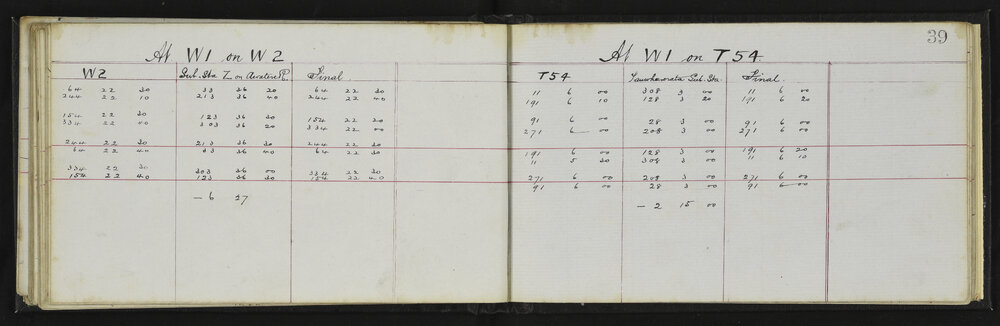 At W1 on W2
W2 Sub. Sta Z on Final
64 22 30 33 36 20 64 22 30
244 22 10 213 36 40 244 22 40
154 22 30 123 36 30 154 22 30
334 22 40 303 36 20 334 22 00
244 22 30 213 36 30 244 22 30
64 22 40 33 36 40 64 22 30
334 22 30 303 36 00 334 22 30
154 22 40 123 36 30 154 22 40
— 6 27
39
At W1 on T54
T54 Sub. Sta. Final.
11 6 00 308 3 00 11 6 00
191 6 10 128 3 20 191 6 20
91 6 00 28 3 00 91 6 00
271 6 00 208 3 00 271 6 00
191 6 00 128 3 00 191 6 20
11 5 30 308 3 00 11 6 10
271 6 00 208 3 00 271 6 00
91 6 00 28 3 00 91 6 00
— 2 15 00